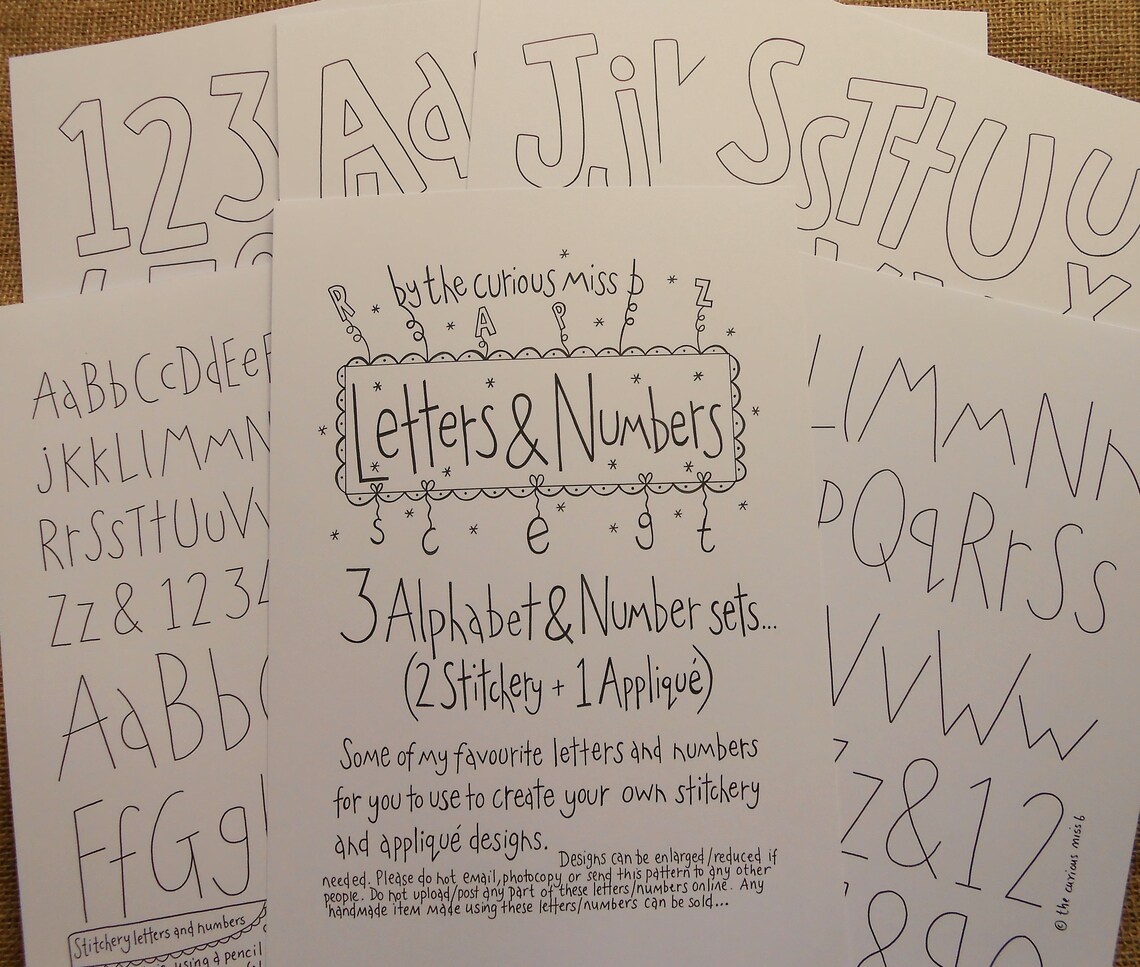 123
Ad
JjK
SsTtUu
by the curious miss b
R A P Z
Letters & Numbers
s c e g t
3 Alphabet & Number sets...
(2 Stitchery + 1 Appliqué)
Some of my favourite letters and numbers
for you to use to create your own stitchery
and appliqué designs.
Designs can be enlarged/reduced if
needed. Please do not email, photocopy or send this pattern to any other
people. Do not upload/post any part of these letters/numbers online. Any
handmade item made using these letters/numbers can be sold...
AaBbCcDdEeF
jKkLlMmN
RrSsTtUuVv
Zz & 1234
AaBb
FfGg
Stitchery letters and numbers
using a pencil
lMmNn
QqRrSs
VvWw
Z&12
© the curious miss b